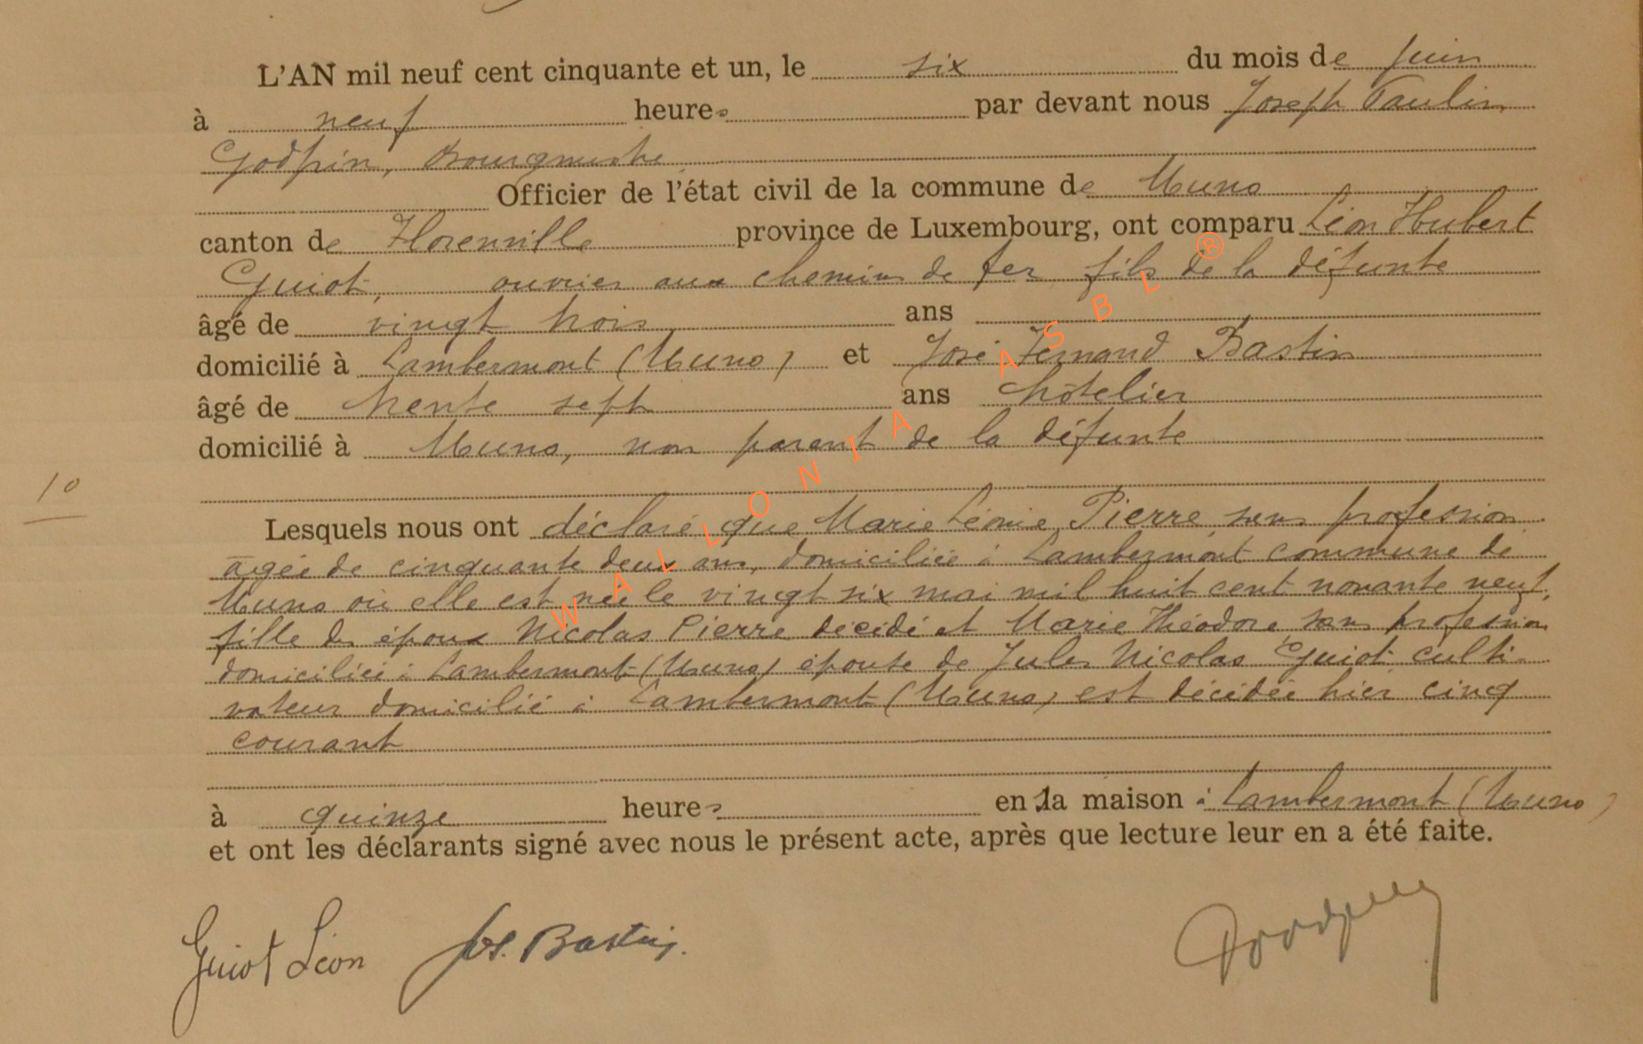 L'AN mil neuf cent cinquante et un, le six du mois de juin
à neuf heures par devant nous Joseph Paulin
Godfrin, Bourgmestre
Officier de l'état civil de la commune de Muno
canton de Florenville province de Luxembourg, ont comparu Léon Hubert
Guiot, ouvrier aux chemins de fer fils de la défunte
âgé de vingt trois ans
domicilié à Lambermont (Muno) et José Fernand Bastin
âgé de trente sept ans hôtelier
domicilié à Muno, non parent de la défunte
10
Lesquels nous ont déclaré que Marie Léonie Pierre sans profession
âgée de cinquante deux ans, domiciliée à Lambermont commune de
Muno où elle est née le vingt six mai mil huit cent nonante neuf,
fille des époux Nicolas Pierre décédé et Marie Théodore sans profession
domiciliée à Lambermont (Muno) épouse de Jules Nicolas Guiot culti-
vateur domicilié à Lambermont (Muno) est décédée hier cinq
courant
à quinze heures en la maison à Lambermont (Muno)
et ont les déclarants signé avec nous le présent acte, après que lecture leur en a été faite.
Guiot Léon Jos. Bastin.
WALLONIA ASBL ®